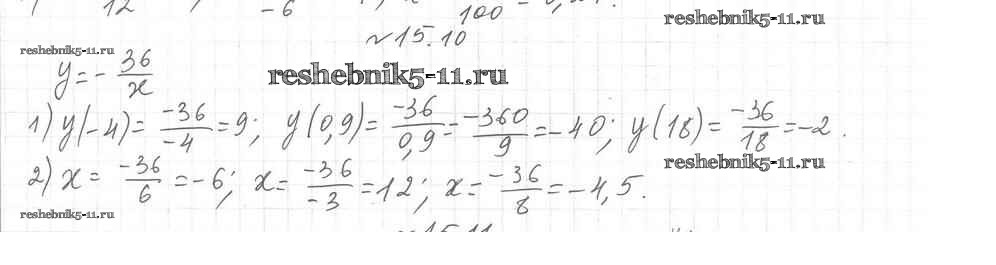 12 -6 100
reshebnik5-11.ru
№15.10
reshebnik5-11.ru
y = - 36/x
reshebnik5-11.ru
1) y(-4) = -36/-4 = 9; y(0,9) = -36/0,9 = -360/9 = -40; y(18) = -36/18 = -2.
2) x = -36/6 = -6; x = -36/-3 = 12; x = -36/8 = -4,5.
reshebnik5-11.ru
reshebnik5-11.ru